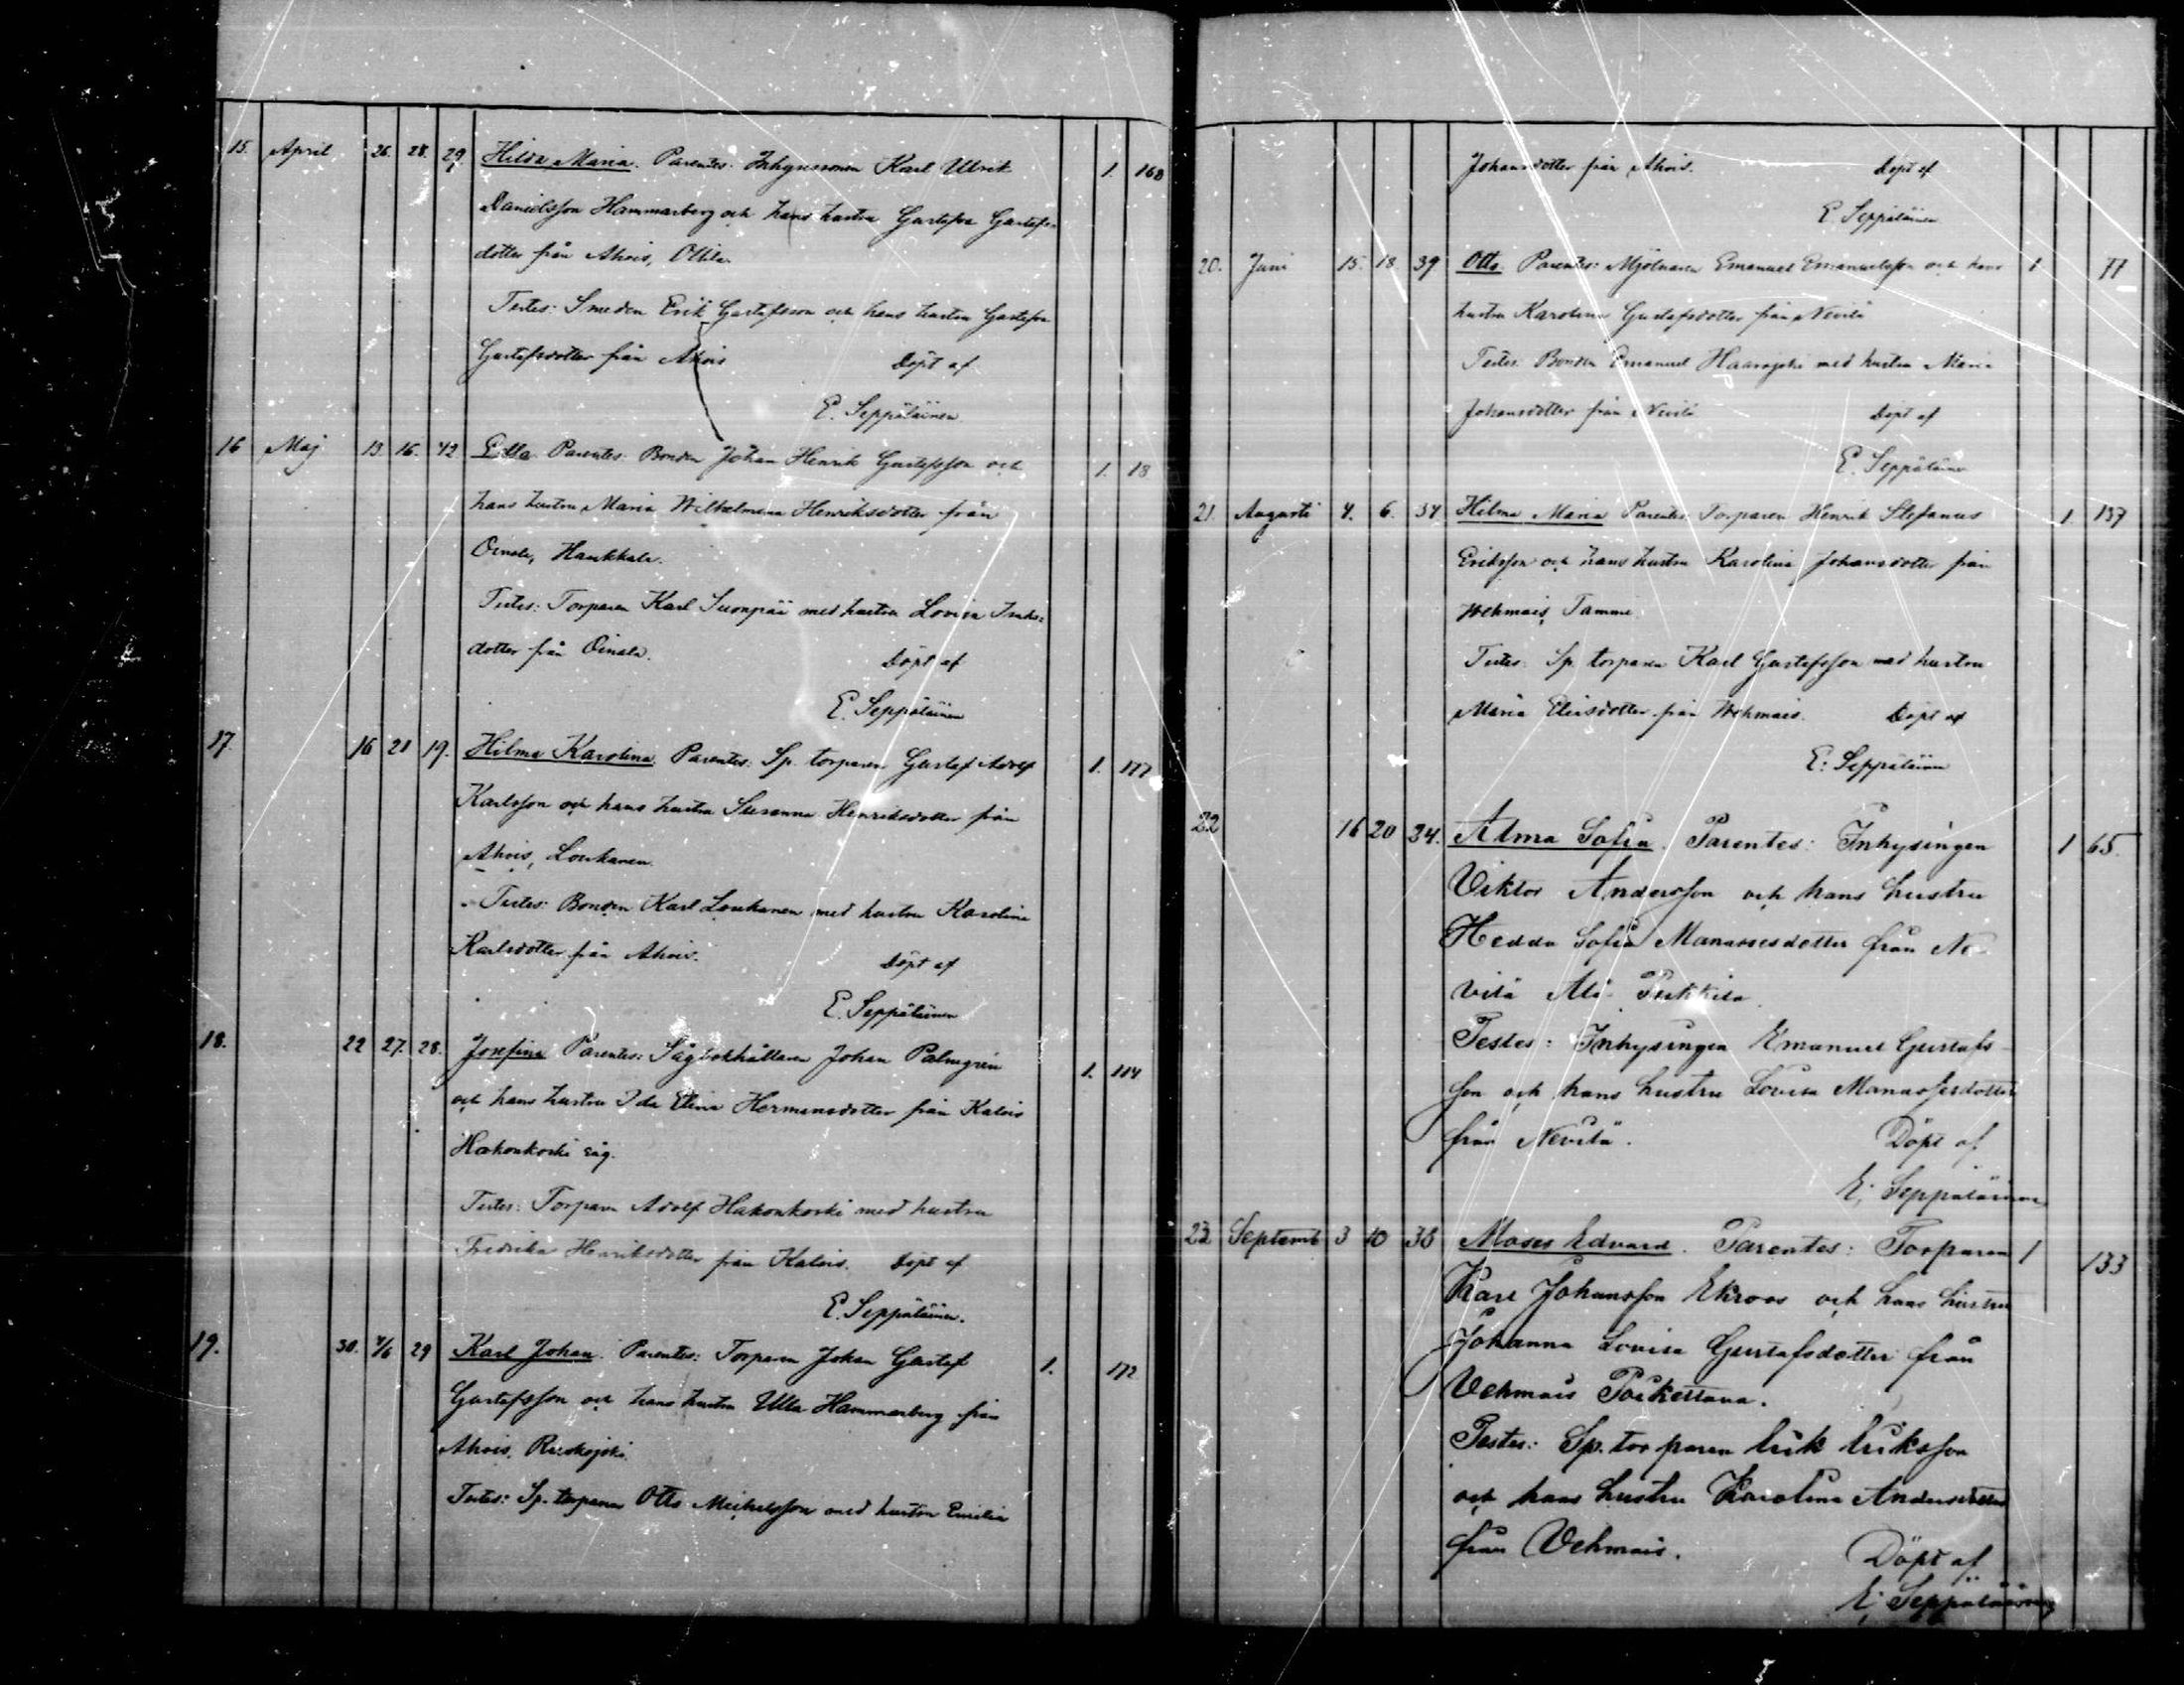 15. April 26. 28. 29 Hilda Maria. Parentes: Inhysesonen Karl Ulrik 1. 168
Danielsson Hammarberg och hans hustru Gustafva Gustafs-
dotter från Ahois, Ollila.
Testes: Smeden Erik Gustafsson och hans hustru Gustafva
Gustafsdotter från Ahois Döpt af
E. Seppäläinen
16 Maj 13 16. 42 Edla Parentes: Bonden Johan Henrik Gustafsson och 1. 18
hans hustru Maria Wilhelmina Henriksdotter från
Oinala, Haukkala.
Testes: Torparen Karl Suonpää med hustru Lovisa Isaks-
dotter från Oinala. Döpt af
E. Seppäläinen
17. 16 21 19. Hilma Karolina. Parentes: Sp. torparen Gustaf Adolf 1. 177
Karlsson och hans hustru Susanna Henriksdotter från
Ahois, Loukanen.
Testes: Bonden Karl Loukanen med hustru Karolina
Karlsdotter från Ahois. Döpt af
E. Seppäläinen
18. 22 27. 28. Josefina Parentes: Sågbokhållaren Johan Palmgrén 1. 114
och hans hustru Ida Elina Hermansdotter från Kalois
Hakonkoski såg.
Testes: Torparen Adolf Hakonkoski med hustru
Fredrika Henriksdotter från Kalois. Döpt af
E. Seppäläinen.
19. 30. 4/6 29 Karl Johan. Parentes: Torparen Johan Gustaf 1. 172
Gustafsson och hans hustru Ulla Hammarberg från
Ahois, Ruskojoki.
Testes: Sp. torparen Otto Michelsson med hustru Emilia
Johansdotter från Ahois. Döpt af
E. Seppäläinen
20. Juni 15. 18 39 Otto. Parentes: Mjölnaren Emanuel Emanuelsson och hans 1 77
hustru Karolina Gustafsdotter från Nevilä
Testes: Bonden Emanuel Haarajoki med hustru Maria
Johansdotter från Nevilä Döpt af
E. Seppäläinen
21. Augusti 4. 6. 34 Hilma Maria Parentes: Torparen Henrik Stefanus 1. 137
Eriksson och hans hustru Karolina Johansdotter från
Wehmais, Tammi.
Testes: Sp. torparen Karl Gustafsson med hustru
Maria Eliasdotter från Wehmais. Döpt af
E. Seppäläinen
22 16 20 34. Alma Sofia. Parentes: Inhysingen 1 65.
Viktor Andersson och hans hustru
Hedda Sofia Manassesdotter från Ne-
vilä Ala-
Testes: Inhysingen Emanuel Gustafs-
son och hans hustru Lovisa Manassesdotter
från Nevilä. Döpt af
E. Seppäläinen
23 Septemb 3 10 38 Moses Edvard. Parentes: Torparen 1 133
Karl Johansson Ekroos och hans hustru
Johanna Lovisa Gustafsdotter från
Vehmais
Testes: Sp. torparen Erik Eriksson
och hans hustru Karolina Andersdotter
från Vehmais. Döpt af
E. Seppäläinen